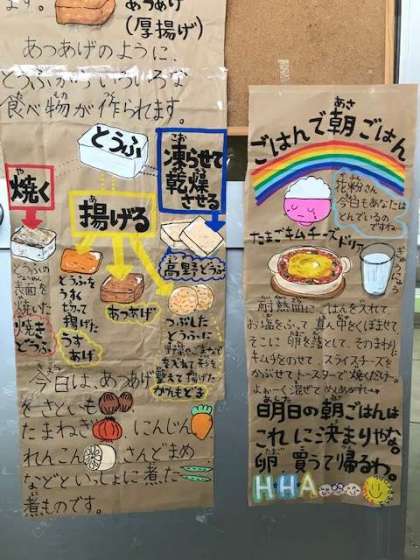 ます。
あつあげ
(厚揚げ)
あつあげのように、
とうふからいろいろな
食べ物が作られます。
とうふ
焼く
や
揚げる
あ
凍らせて
こお
乾燥
かんそう
させる
とうふの
表面を
焼いた
焼き
どうふ
とうふを
うすく
切って
揚げた
うす
あげ
あつあげ
高野どうふ
つぶした
とうふに
整えて揚げた
がんもどき
今日は、あつあげ
をさといも
たまねぎ
にんじん
れんこん
さんどまめ
などといっしょに煮た
煮ものです。
ごはんで朝ごはん
あさ
花粉さん
今日もあなたは
とんでいるの
ですね
たまごキムチーズドリー
耐熱皿にごはんを入れて
お塩をふって真ん中をくぼませて
そこに卵を落として、そのまわりに
キムチをのせて スライスチーズを
かぶせてトースターで焼くだけ〜。
よぉ〜く混ぜてめしあがれ〜
明日の朝ごはんは
これにご決まりやな。
卵、買うて帰るわ。
HHA